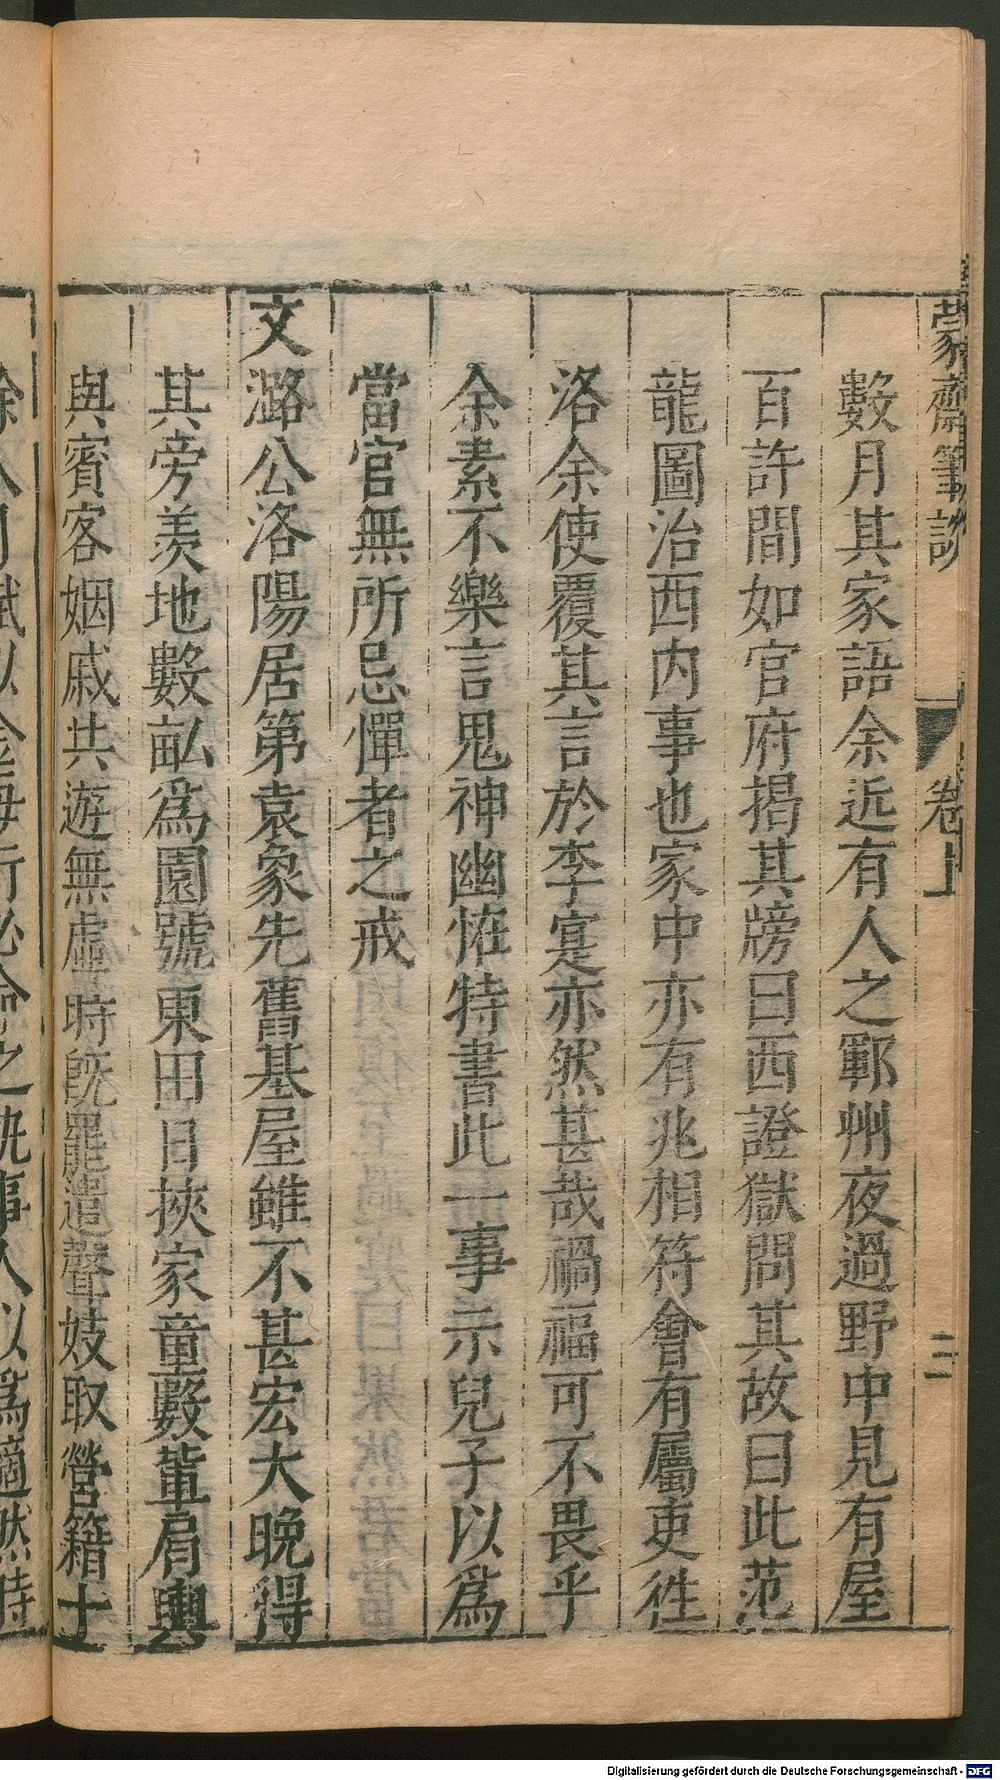 蒙齋筆談 卷上 二
數月其家語余近有人之鄆州夜過野中見有屋
百許間如官府揭其牓曰西證獄問其故曰此范
龍圖治西内事也家中亦有兆相符會有屬吏徃
洛余使覆其言於李寔亦然甚哉禍福可不畏乎
余素不樂言鬼神幽恠特書此一事示兒子以爲
當官無所忌憚者之戒
文潞公洛陽居第袁象先舊基屋雖不甚宏大晚得
其旁羡地數畝爲園號東田日挾家童數輩肩輿
與賓客姻戚共遊無虛時旣罷遣聲妓取營籍十
Digitalisierung gefördert durch die Deutsche Forschungsgemeinschaft - DFG